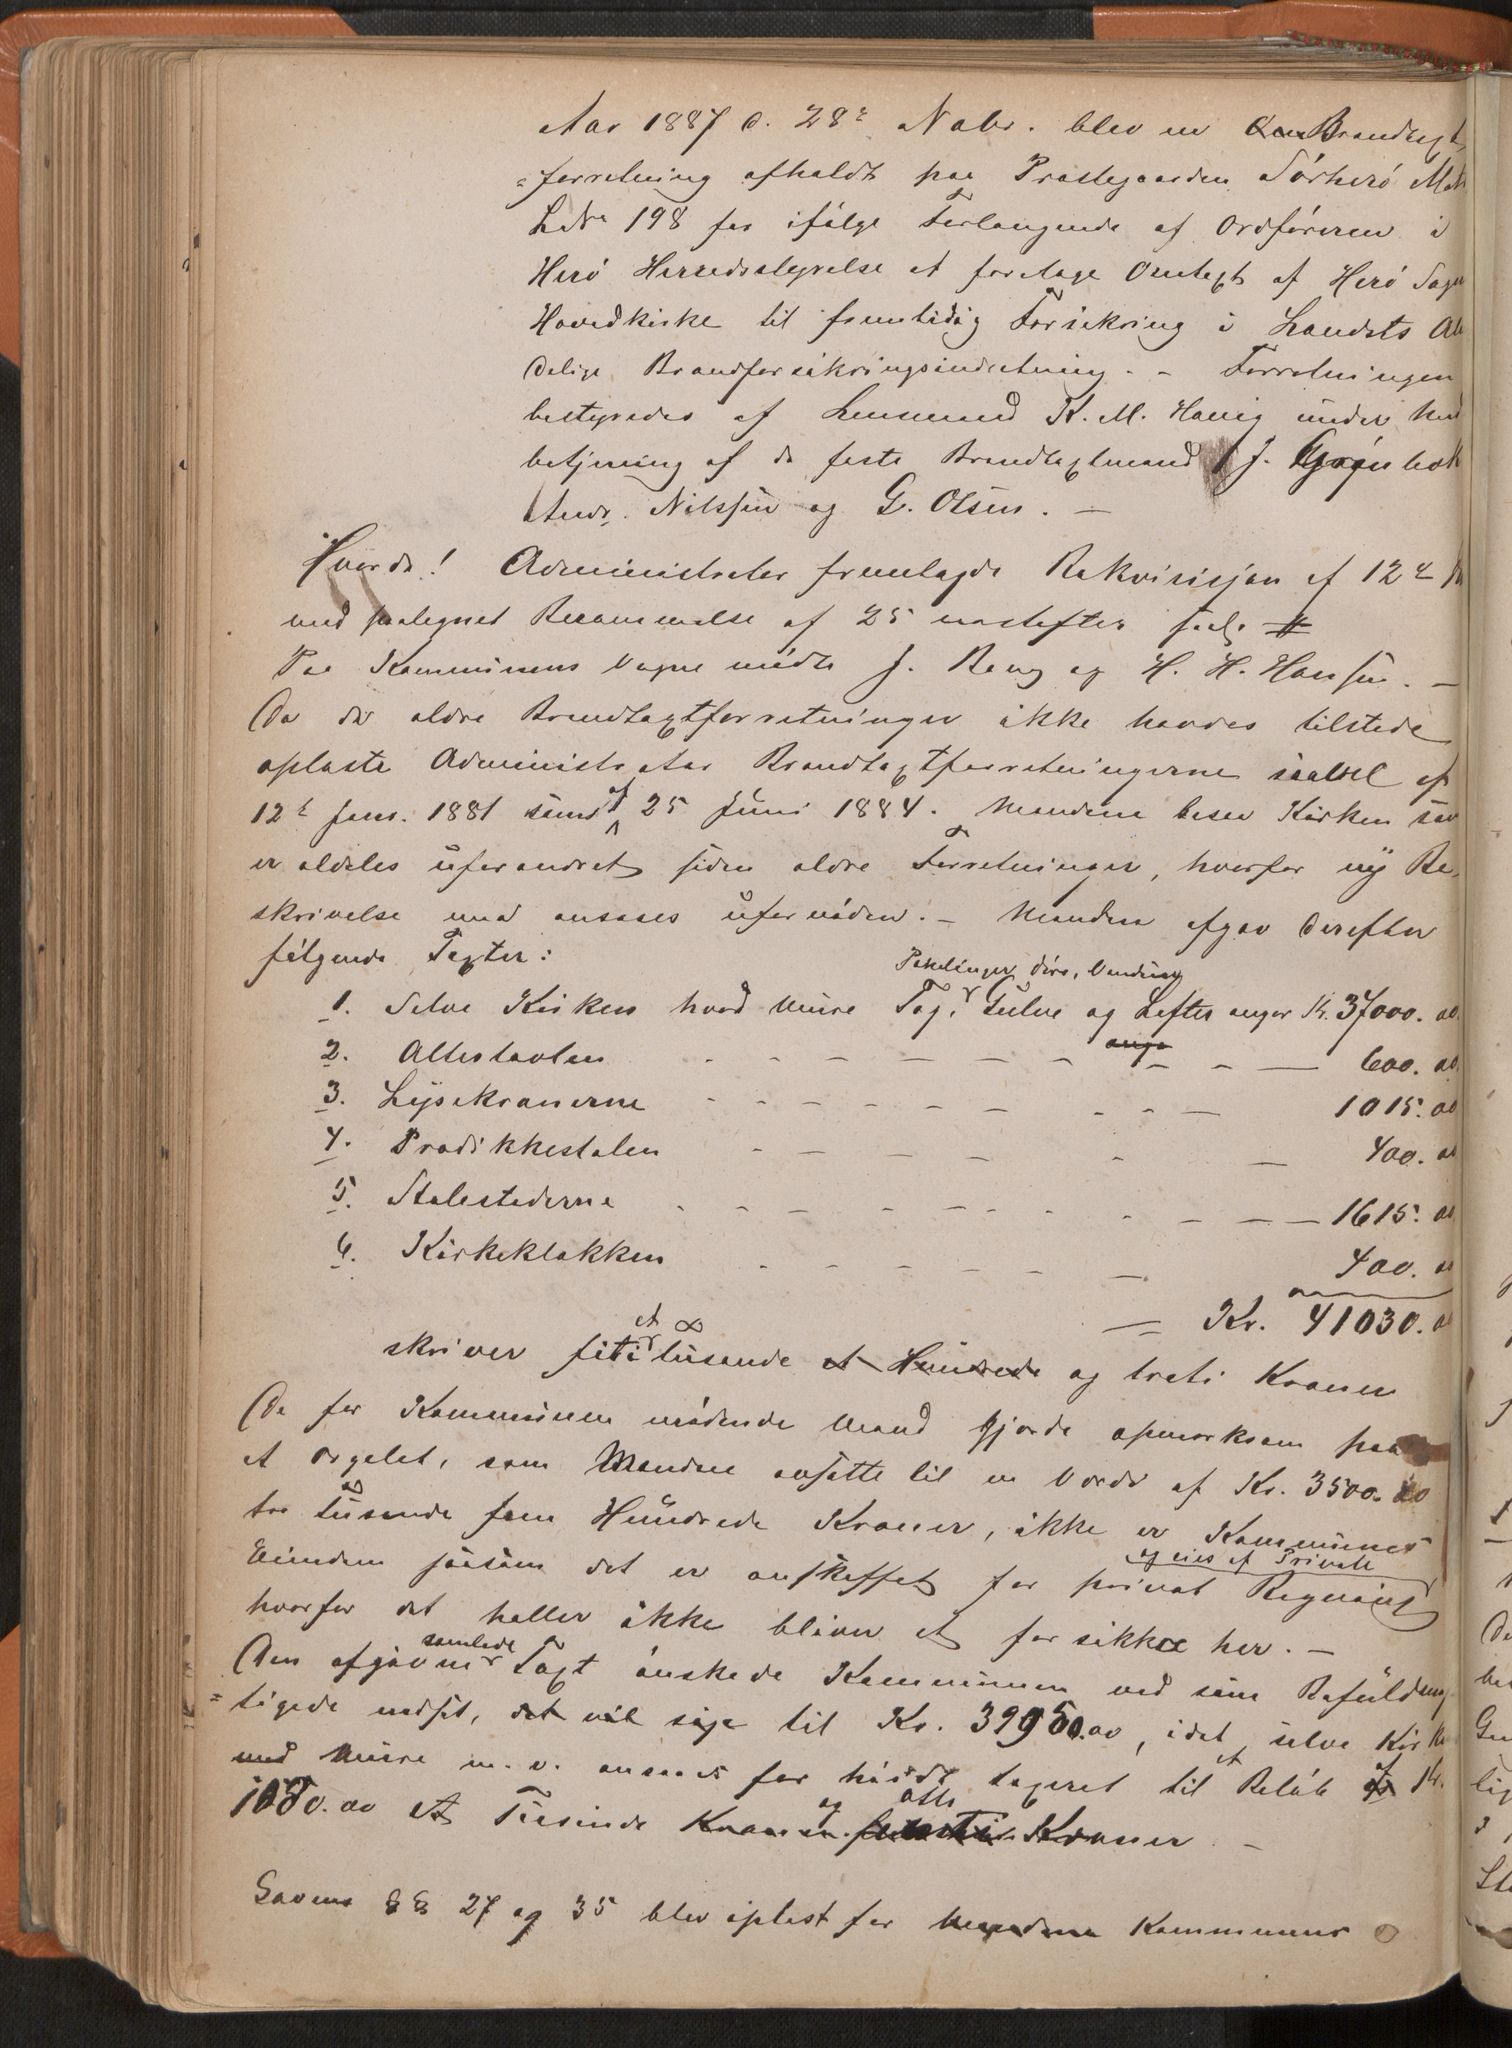 Aar 1887 d. 28de Nobr. blev en Brandtagt
=forretning afholdt paa Prestegaarden Sørherø Mat
L.No 198 for ifølge Forlangende af Ordføreren i
Herø Herredsstyrelse at foretage Omtagt af Herø Sogn
Hovedkirke til fremtidig Forsikring i Landets Al
delige Brandforsikringsindretning. - Forretningen
bestyredes af Lensmand K. M. Havig under Med
betjening af de faste Brandtagtmænd J. Grønbæk
Andr. Nilssen og G. Olsen. -
Hvorda! Administrator fremlagde Rekvisisjon af 12te
med paategnet Berammelse af 25 næstefter
Paa Kommunens Vegne mødte J. Bang og H. H. Hanssen. -
Da de ældre Brandtagtforretninger ikke havdes tilstede
oplæste Administrator Brandtagtforretningerne saavel af
12te Janr. 1881 samt af 25 Juni 1884. Mændene besaa Kirken som
er aldeles uforandret siden ældre Forretninger, hvorfor ny Be-
skrivelse med ansaaes ufornøden. - Mændene afgav derefter
følgende Tagter:
Panelinger, døre, Vinduer
1. Selve Kirken hvad Mure Tag, Gulve og Lofter angaar Kr. 37000. 00
2. Altertavlen - - - - 600. 00
3. Lysekronerne - - - - 1015. 00
4. Prædikkestolen - - - - 400. 00
5. Stolestaderne - - - - 1615. 00
6. Kirkeklokken - - - - 400. 00
Kr. 41030. 00
et
skriver føti tusende et Hundrede og treti Kroner
De for Kommunen mødende Mænd gjorde opmærksom paa
at Orgelet, som Mændene ansatte til en Værdi af Kr. 3500. 00
tre tusende fem Hundrede Kroner, ikke er Kommunens
og eies af Private
Eiendom saasom det er anskaffet for privat Regning
hvorfor det heller ikke bliver at forsikkre her. -
samlede
Den afgivne Tagt ønskede Kommunen ved sine Befuldmæg
=tigede nedsat, det vil sige til Kr. 39950.00, idet selve Kirken
med Mure m. v. ansaaes for høidt tageret til et Beløb af Kr.
1080.00 Et Tusinde og otti Kroner -
Lovens §§ 27 og 35 blev oplæst for Mændene Kommunens